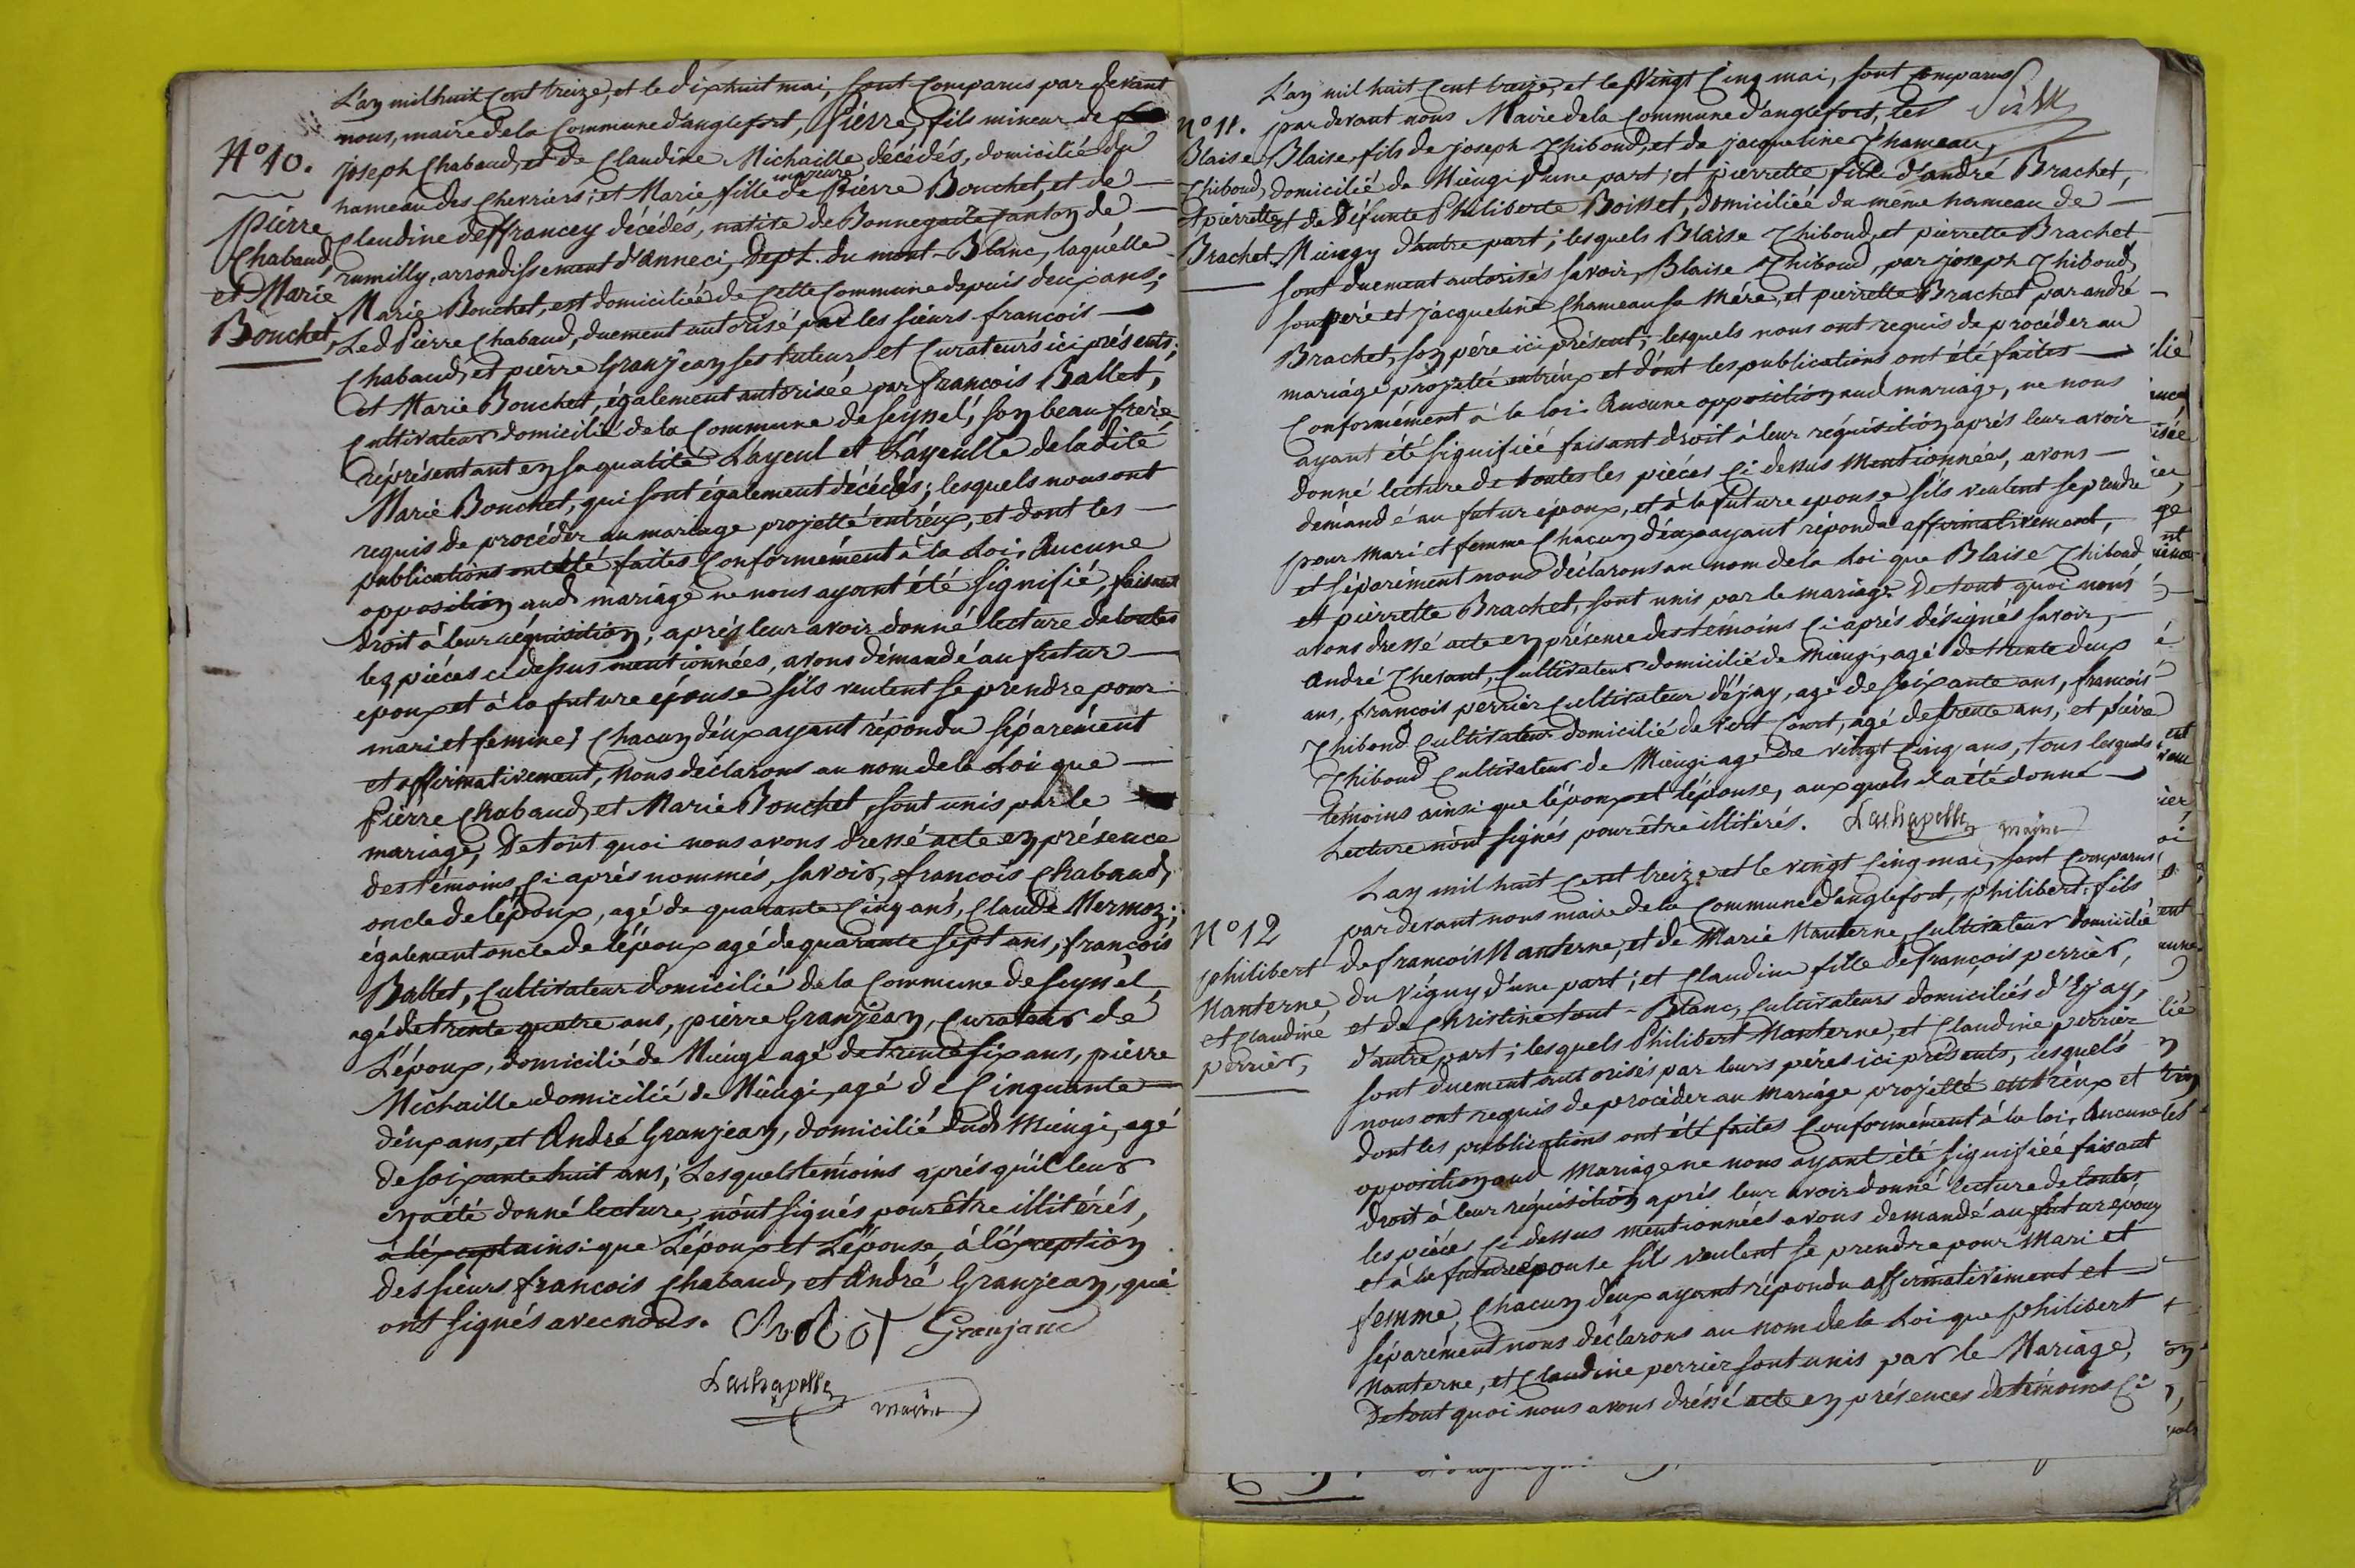 L'an mil huit cent treize, et le dixhuit mai, sont comparus par devant
nous, maire de la commune d'anglefort, Pierre, fils mineur de
N° 10.
joseph Chabaud, et de Claudine Michaille décédés, domicilié du
hameau des Chevriers; et Marie, fille mineure de Pierre Bouchet, et de
Pierre
Chabaud,
et Marie
Bouchet,
Claudine deffrancey décédés, native de Bonneguête canton de
rumilly, arrondissement d'anneci, Dept. du mont-Blanc, laquelle
Marie Bouchet, est domiciliée de cette Commune depuis deux ans;
Led Pierre Chabaud, duement autorisé par les sieurs francois
Chabaud, et pierre Granjean ses tuteurs et Curateurs ici présents;
et Marie Bouchet, également autorisée par françois Ballet,
Cultivateur domicilié de la Commune de seyssel, son beau frere
réprésentant en sa qualité L'ayeul et L'ayeulle de ladite
Marie Bouchet, qui sont également décédés; lesquels nous ont
requis de procéder au mariage projetté entréux, et dont les
publications ont été faites Conformément à la Loi, Aucune
opposition aud mariage ne nous ayant été signifié, faisant
droit à leur réquisition, aprés leur avoir donné lecture de toutes
les piéces ci dessus mentionnées, avons démandé au futur
epoux et à la future épouse s'ils veulent se prendre pour
mari et femme; Chacun d'éux ayant répondu séparément
et affirmativement, nous déclarons au nom de la Loi que
Pierre Chabaud, et Marie Bouchet, sont unis par le
mariage, De tout quoi nous avons dressé acte en présence
des témoins, Ci aprés nommés, savoir, françois Chabaud,
oncle de l'époux, agé de quarante Cinq ans, Claude Mermoz;
également oncle de l'époux agé de quarante sept ans, françois
Ballet, Cultivateur domicilié de la Commune de seyssel,
agé de trente quatre ans, pierre Granjean, Curateur de
L'époux, domicilié de Mieugi agé de trente six ans, pierre
Michaille domicilié de Mieugi, agé de Cinquante
déux ans, et André Granjean, domicilié dud Mieugi, agé
de soixante huit ans; Lesquels temoins aprés qu'il leur
en a été donné lecture, n'ont signés pour être illitérés,
à léxcept ainsi que L'époux et L'épouse, à l'éxception
des sieurs françois Chabaud, et André Granjean, qui
ont signés avec nous. Granjane
Lachapelle maire
L'an mil huit Cent treize, et le Vingt Cinq mai, sont comparus
N° 11.
par devant nous Maire de la Commune d'anglefort, les
Blaise
Thiboud,
et pierrette
Brachet,
Blaise fils de joseph Thiboud, et de jacqueline Chameau,
domicilié de Mieugi d'une part, et pierrette fille d'andré Brachet,
et de Défunte Philiberte Boisset, domiciliée du même hameau de
Mieugy d'autre part; lesquels Blaise Thiboud, et pierrette Brachet
sont duement autorisés savoir, Blaise Thiboud, par joseph Thiboud,
son pere et jacqueline Chameau sa Mére, et pierrette Brachet par andré
Brachet, son pére ici présent; lesquels nous ont requis de procéder au
mariage projetté entréux et dont les publications ont été faites
Conformément à la loi. Aucune opposition aud mariage, ne nous
ayant été signifiée faisant droit à leur réquisition aprés leur avoir
donné lecture de toutes les piéces Ci dessus Mentionnées, avons
demandé au futur époux, et à la future epouse s'ils veulent se prendre
pour Mari et femme Chacun d'éux ayant répondu affirmativement,
et séparément nous déclarons au nom de la Loi que Blaise Thiboud
et pierrette Brachet, sont unis par le mariage. De tout quoi nous
avons dressé acte en présence des témoins Ci aprés désignés savoir,
André Chevant, Cultivateur domicilié de Mieugi, agé de trente deux
ans, françois perrier Cultivateur d'éjay, agé de soixante ans, françois
Thiboud Cultivateur domicilié de Vert Court, agé de trente ans, et piérre
Thiboud Cultivateur de Mieugi agé de vingt Cinq ans, tous lesquels
témoins ainsi que l'époux et l'épouse, aux quels il a été donné
Lecture n'ont signés pour être illitérés. Lachapelle maire
L'an mil huit Cent treize et le vingt Cinq mai, sont Comparus
par devant nous maire de la Commune d'anglefort, philibert fils
N° 12
philibert
Nanterne,
et Claudine
perrier,
de françois Nanterne, et de Marie Nanterne, Cultivateur domicilié
du Vigny d'une part; et Claudine fille de françois perrier,
et de Christine tout-Blanc, Cultivateurs domiciliés d'Ejay,
d'autre part; lesquels Philibert Nanterne, et Claudine perrier
sont duement autorisés par leurs péres ici présents, lesquels
nous ont requis de procéder au Mariage projetté entréux et
dont les publications ont été faites Conformément à la loi, Aucune
opposition aud Mariage ne nous ayant été signifiée faisant
droit à leur réquisition aprés leur avoir donné lecture de toutes
les piéces Ci dessus mentionnées avons demandé au futur epoux
et à la future épouse s'ils veulent se prendre pour Mari et
femme, Chacun d'eux ayant répondu affirmativement et
séparément nous déclarons au nom de la Loi que philibert
Nanterne, et Claudine perrier sont unis par le Mariage,
De tout quoi nous avons dréssé acte en présences de témoins Ci